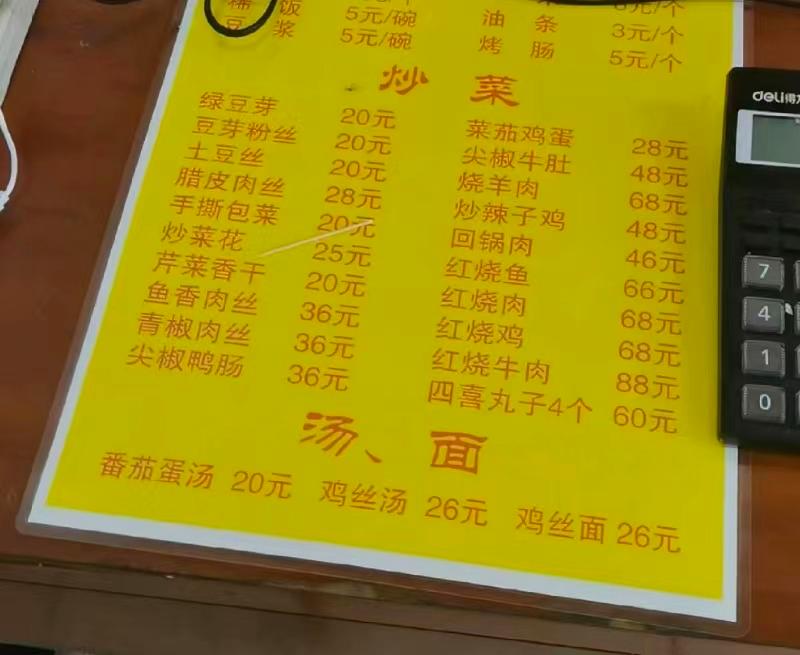 稀饭 5元/碗 油条 3元/个
豆浆 5元/碗 烤肠 5元/个
炒菜
绿豆芽 20元 菜茄鸡蛋 28元
豆芽粉丝 20元 尖椒牛肚 48元
土豆丝 20元 烧羊肉 68元
腊皮肉丝 28元 炒辣子鸡 48元
手撕包菜 20元 回锅肉 46元
炒菜花 25元 红烧鱼 66元
芹菜香干 20元 红烧肉 68元
鱼香肉丝 36元 红烧鸡 68元
青椒肉丝 36元 红烧牛肉 88元
尖椒鸭肠 36元 四喜丸子4个 60元
汤、面
番茄蛋汤 20元 鸡丝汤 26元 鸡丝面 26元
deli得力
7
4
1
0